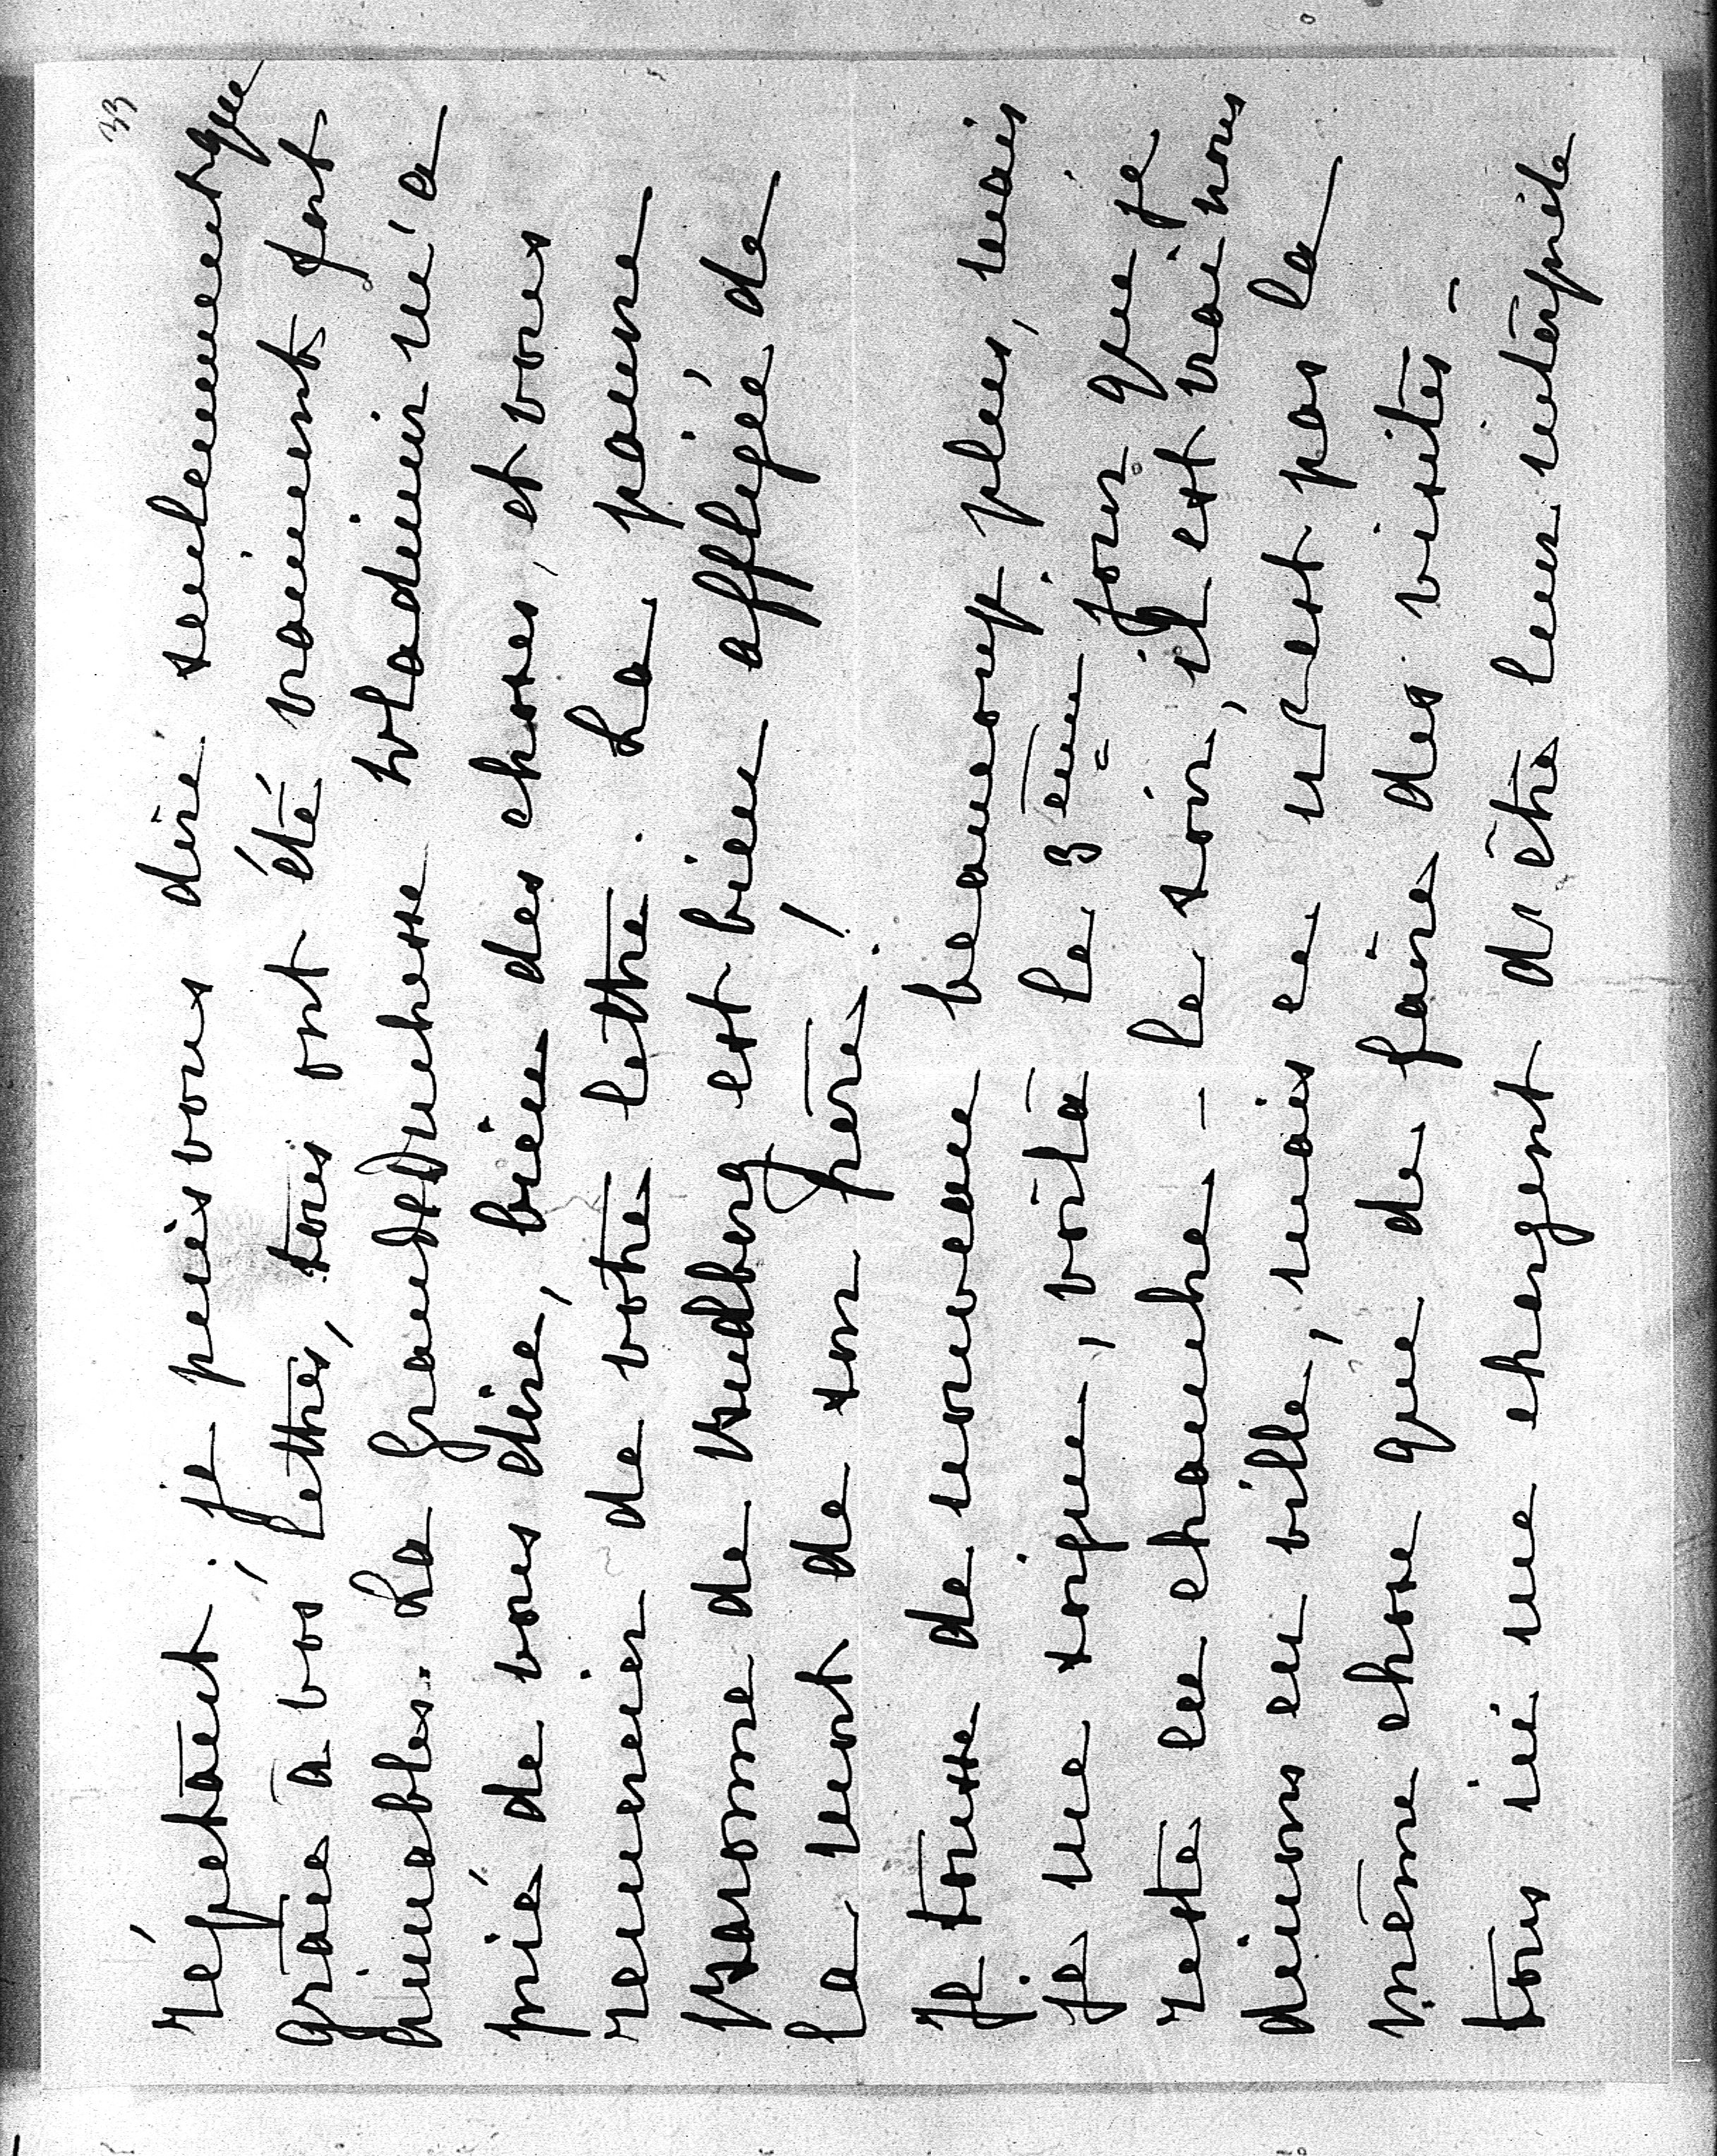 33
répétant; je puis vous dire seulement que
grâce à vos lettres, tous ont été vraiment fort
aimables. La Grande Duchesse Wladimir m'a
prié de vous dire, bien des choses, et vous
remercier de votre lettre. La pauvre
Baronne de Budberg est bien affligée de
la mort de son père!
Je tousse de nouveau beaucoup plus, mais
je me soigne, voilà le 3 ème jour que je
reste en chambre – le soir, il est vrai nous
dinons en ville, mais ce n'est pas la
même chose que de faire des visites –
tous ici me chargent d'être leur interprète